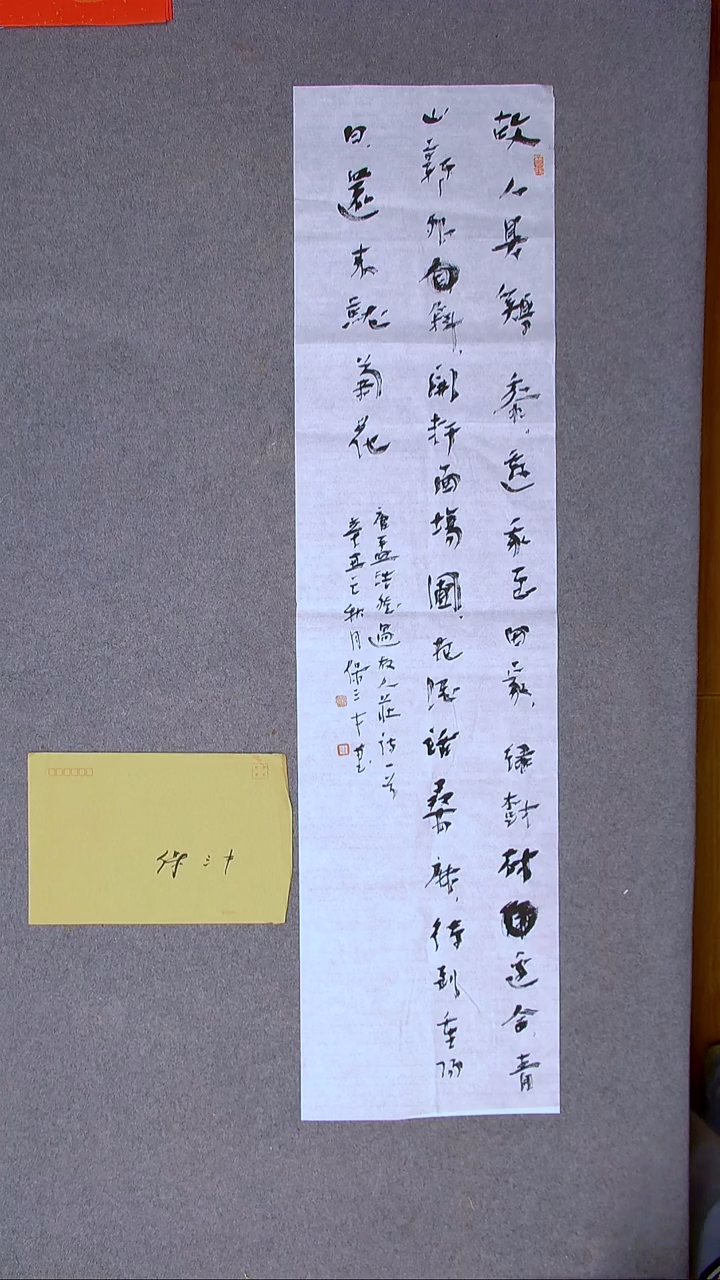 故人具鷄黍，邀我至田家，綠樹村邊合，青
山郭外斜，開軒面場圃，把酒話桑麻，待到重陽
日，還來就菊花
唐孟浩然過故人莊詩一首
辛丑之秋月保三書
保三